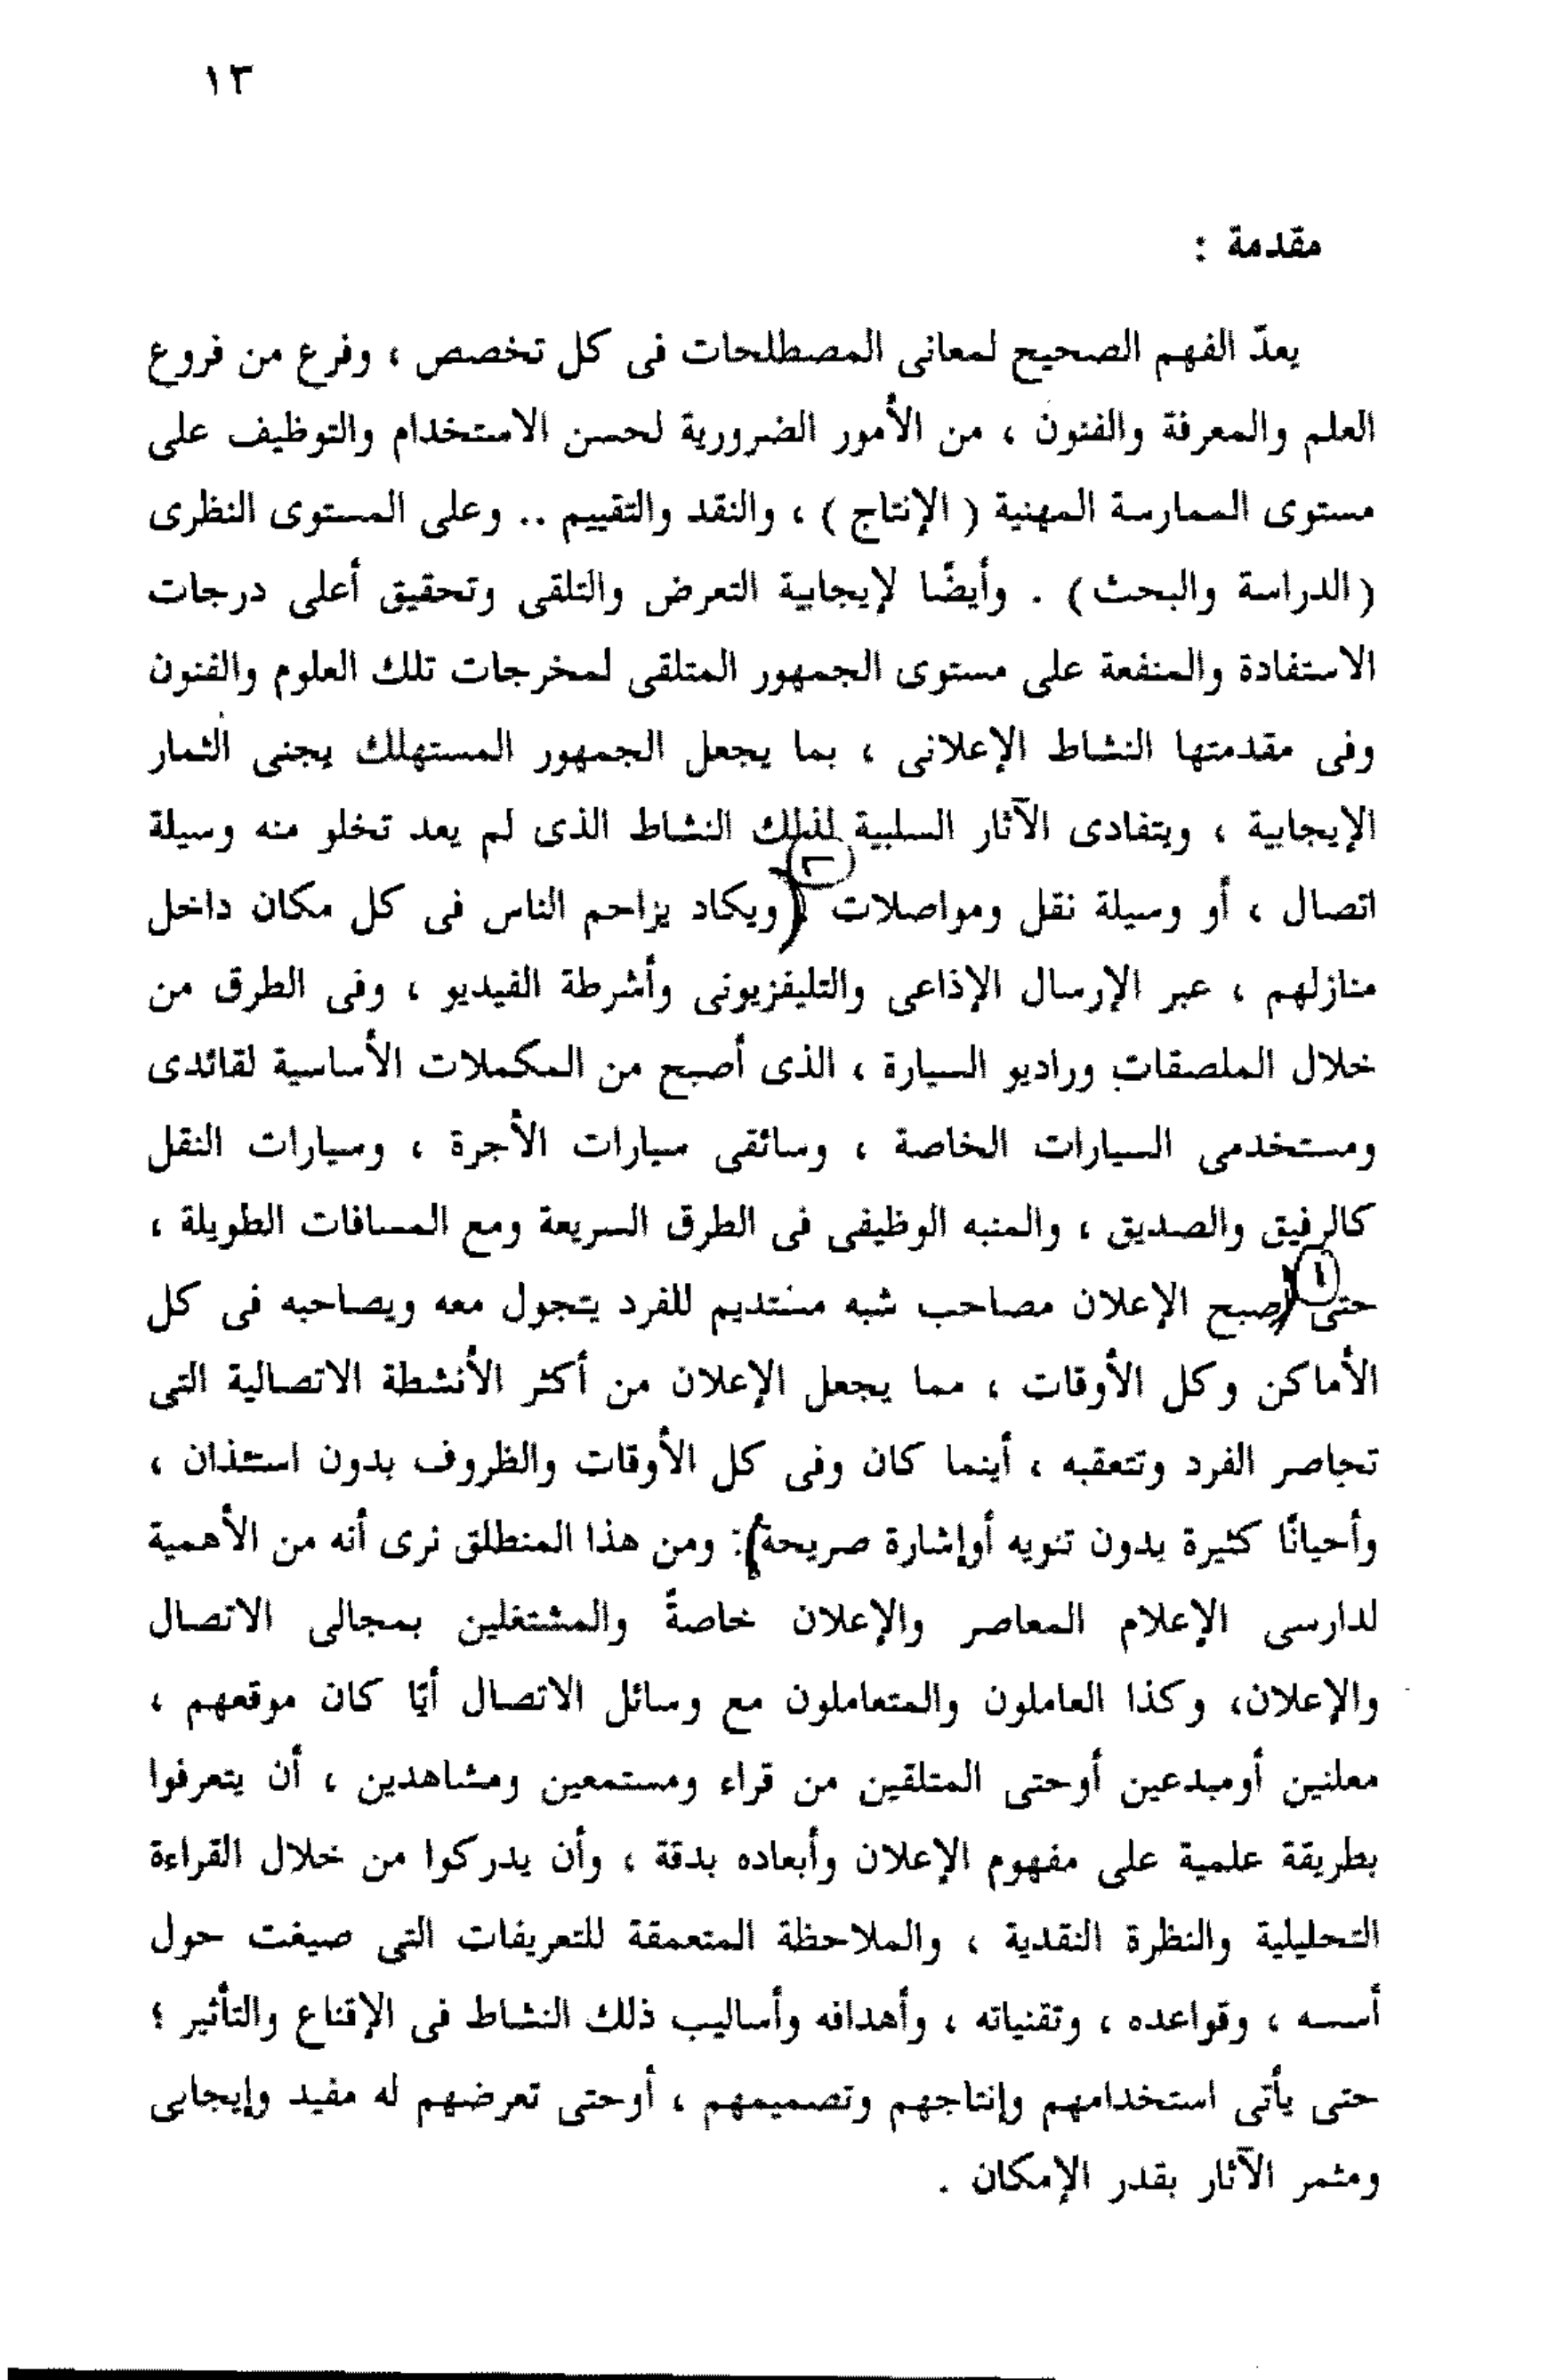 ١٣
مقدمة :
يعدّ الفهم الصحيح لمعانى المصطلحات فى كل تخصص ، وفرع من فروع
العلم والمعرفة والفنون ، من الأمور الضرورية لحسن الاستخدام والتوظيف على
مستوى الممارسة المهنية ( الإنتاج ) ، والنقد والتقييم .. وعلى المستوى النظرى
( الدراسة والبحث ) . وأيضًا لإيجابية التعرض والتلقى وتحقيق أعلى درجات
الاستفادة والمنفعة على مستوى الجمهور المتلقى لمخرجات تلك العلوم والفنون
وفى مقدمتها النشاط الإعلانى ، بما يجعل الجمهور المستهلك يجنى الثمار
الإيجابية ، ويتفادى الآثار السلبية لذلك النشاط الذى لم يعد تخلو منه وسيلة
اتصال ، أو وسيلة نقل ومواصلات . (٢) ويكاد يزاحم الناس فى كل مكان داخل
منازلهم ، عبر الإرسال الإذاعى والتليفزيونى وأشرطة الفيديو ، وفى الطرق من
خلال الملصقات وراديو السيارة ، الذى أصبح من المكملات الأساسية لقائدى
ومستخدمى السيارات الخاصة ، وسائقى سيارات الأجرة ، وسيارات النقل
كالرفيق والصديق ، والمنبه الوظيفى فى الطرق السريعة ومع المسافات الطويلة ،
حتى (١) صبح الإعلان مصاحب شبه مستديم للفرد يتجول معه ويصاحبه فى كل
الأماكن وكل الأوقات ، مما يجعل الإعلان من أكثر الأنشطة الاتصالية التى
تحاصر الفرد وتتعقبه ، أينما كان وفى كل الأوقات والظروف بدون استئذان ،
وأحيانًا كثيرة بدون تنويه أوإشارة صريحة): ومن هذا المنطلق نرى أنه من الأهمية
لدارسى الإعلام المعاصر والإعلان خاصةً والمشتغلين بمجالى الاتصال
والإعلان، وكذا العاملون والمتعاملون مع وسائل الاتصال أيّا كان موقعهم ،
معلنين أومبدعين أوحتى المتلقين من قراء ومستمعين ومشاهدين ، أن يتعرفوا
بطريقة علمية على مفهوم الإعلان وأبعاده بدقة ، وأن يدركوا من خلال القراءة
التحليلية والنظرة النقدية ، والملاحظة المتعمقة للتعريفات التى صيغت حول
أسسه ، وقواعده ، وتقنياته ، وأهدافه وأساليب ذلك النشاط فى الإقناع والتأثير ؛
حتى يأتى استخدامهم وإنتاجهم وتصميمهم ، أوحتى تعرضهم له مفيد وإيجابى
ومثمر الآثار بقدر الإمكان .